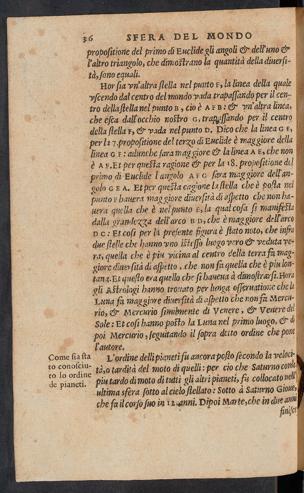 36 SFERA DEL MONDO
propositione del primo di Euclide gli angoli & dell'uno &
l'altro triangolo, che dimostrano la quantità della diversi-
tà, sono equali.
Hor sia vn'altra stella nel punto F, la linea della quale
vscendo dal centro del mondo vada trapassando per il cen-
tro della stella nel punto B, cioè AFB: & vn'altra linea,
che esca dall'occhio nostro G, trapassando per il centro
della stella F, & vada nel punto D. Dico che la linea GE,
per la 7. propositione del terzo di Euclide è maggiore della
linea GF: adunche sara maggiore & la linea AE, che non
è AF. Et per questa ragione & per la 18. propositione del
primo di Euclide l'angolo AFG sara maggiore dell'an-
golo GEA. Et per questa cagione la stella che è posta nel
punto F havera maggiore diversità di aspetto che non ha-
uera quella che è nel punto E, la qual cosa si manifesta
dalla grandezza dell'arco BD, che è maggiore dell'arco
DC: Et cosi per la presente figura è stato noto, che infra
due stelle che hanno vno istesso luogo vero & veduta ve-
ra, quella che è piu vicina al centro della terra fa mag-
giore diversità di aspetto, che non fa quella che è piu lon-
tana. Et questo era quello che si haueua à dimostrarsi. Hora
gli Astrologi hanno trouato per lunga osseruatione che la
Luna fa maggiore diversità di aspetto che non fa Mercu-
rio, & Mercurio similmente di Venere, & Venere del
Sole: Et cosi hanno posto la Luna nel primo luogo, & di
poi Mercurio, seguitando il sopra detto ordine che pone
l'autore.
Come sia sta
to conosciu-
to lo ordine
de pianeti.
L'ordine delli pianeti fu ancora posto secondo la veloci-
tà, o tardità del moto di quelli: per cio che Saturno come
piu tardo di moto di tutti gli altri pianeti, fu collocato nell'
ultima sfera sotto al cielo stellato: Sotto à Saturno Gioue,
che fa il corso suo in 12. anni. Dipoi Marte, che in due anni